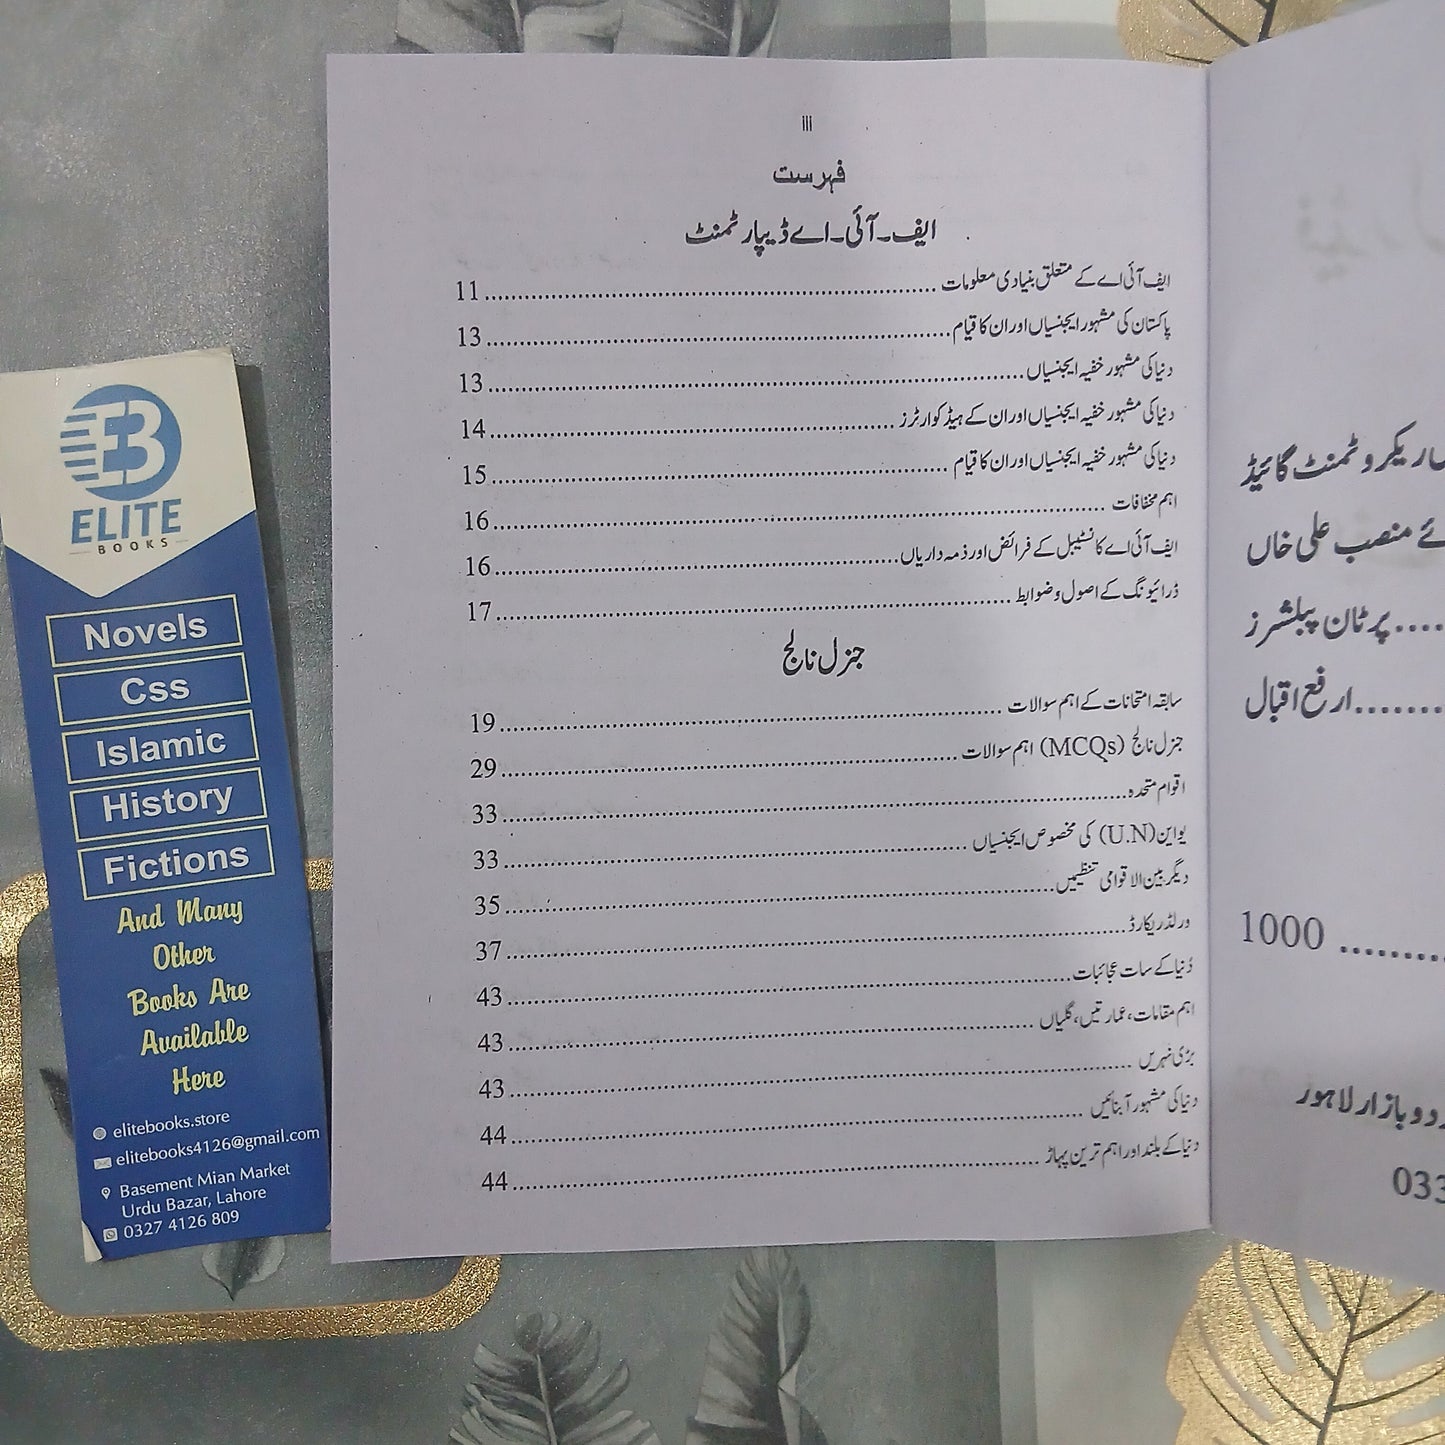 iii
فہرست
ایف۔آئی۔اے ڈیپارٹمنٹ
ایف آئی اے کے متعلق بنیادی معلومات ........ 11
پاکستان کی مشہور ایجنسیاں اور ان کا قیام ........ 13
دنیا کی مشہور خفیہ ایجنسیاں ........ 13
دنیا کی مشہور خفیہ ایجنسیاں اور ان کے ہیڈ کوارٹرز ........ 14
دنیا کی مشہور خفیہ ایجنسیاں اور ان کا قیام ........ 15
اہم مخففات ........ 16
ایف آئی اے کانسٹیبل کے فرائض اور ذمہ داریاں ........ 16
ڈرائیونگ کے اصول و ضوابط ........ 17
جنرل نالج
سابقہ امتحانات کے اہم سوالات ........ 19
جنرل نالج (MCQs) اہم سوالات ........ 29
اقوام متحدہ ........ 33
یو این (U.N) کی مخصوص ایجنسیاں ........ 33
دیگر بین الاقوامی تنظیمیں ........ 35
ورلڈ ریکارڈ ........ 37
دُنیا کے سات عجائبات ........ 43
اہم مقامات، عمارتیں، گلیاں ........ 43
بڑی نہریں ........ 43
دنیا کی مشہور آبنائیں ........ 44
دنیا کے بلند اور اہم ترین پہاڑ ........ 44
ریکروٹمنٹ گائیڈ
منصب علی خاں
پرٹان پبلشرز
ارفع اقبال
1000 ........
اردو بازار لاہور
033
EB
ELITE
BOOKS
Novels
Css
Islamic
History
Fictions
And Many
Other
Books Are
Available
Here
elitebooks.store
elitebooks4126@gmail.com
Basement Mian Market
Urdu Bazar, Lahore
0327 4126 809